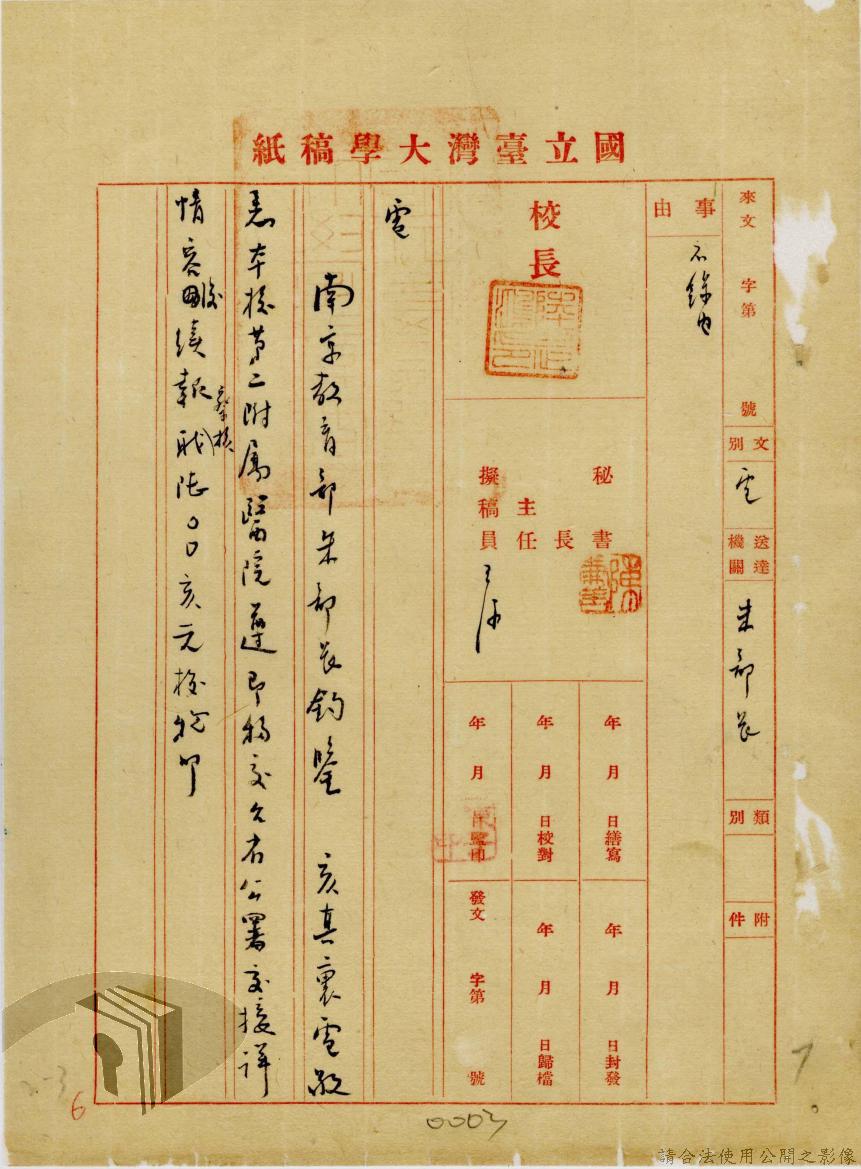 國立臺灣大學稿紙
來文　字第　號
文別　電
送達機關　朱部長
類別
附件
事由
校長
秘書長
主任
擬稿員
年　月　日繕寫
年　月　日校對
年　月　日監印
年　月　日封發
年　月　日歸檔
發文　字第　號
電
南京教育部朱部長鈞鑒　亥真襄電敬
悉本校第二附屬醫院遵即移交省公署交接詳
情容後續報
察核
職陸〇〇亥元校印
0003
7
6
請合法使用公開之影像